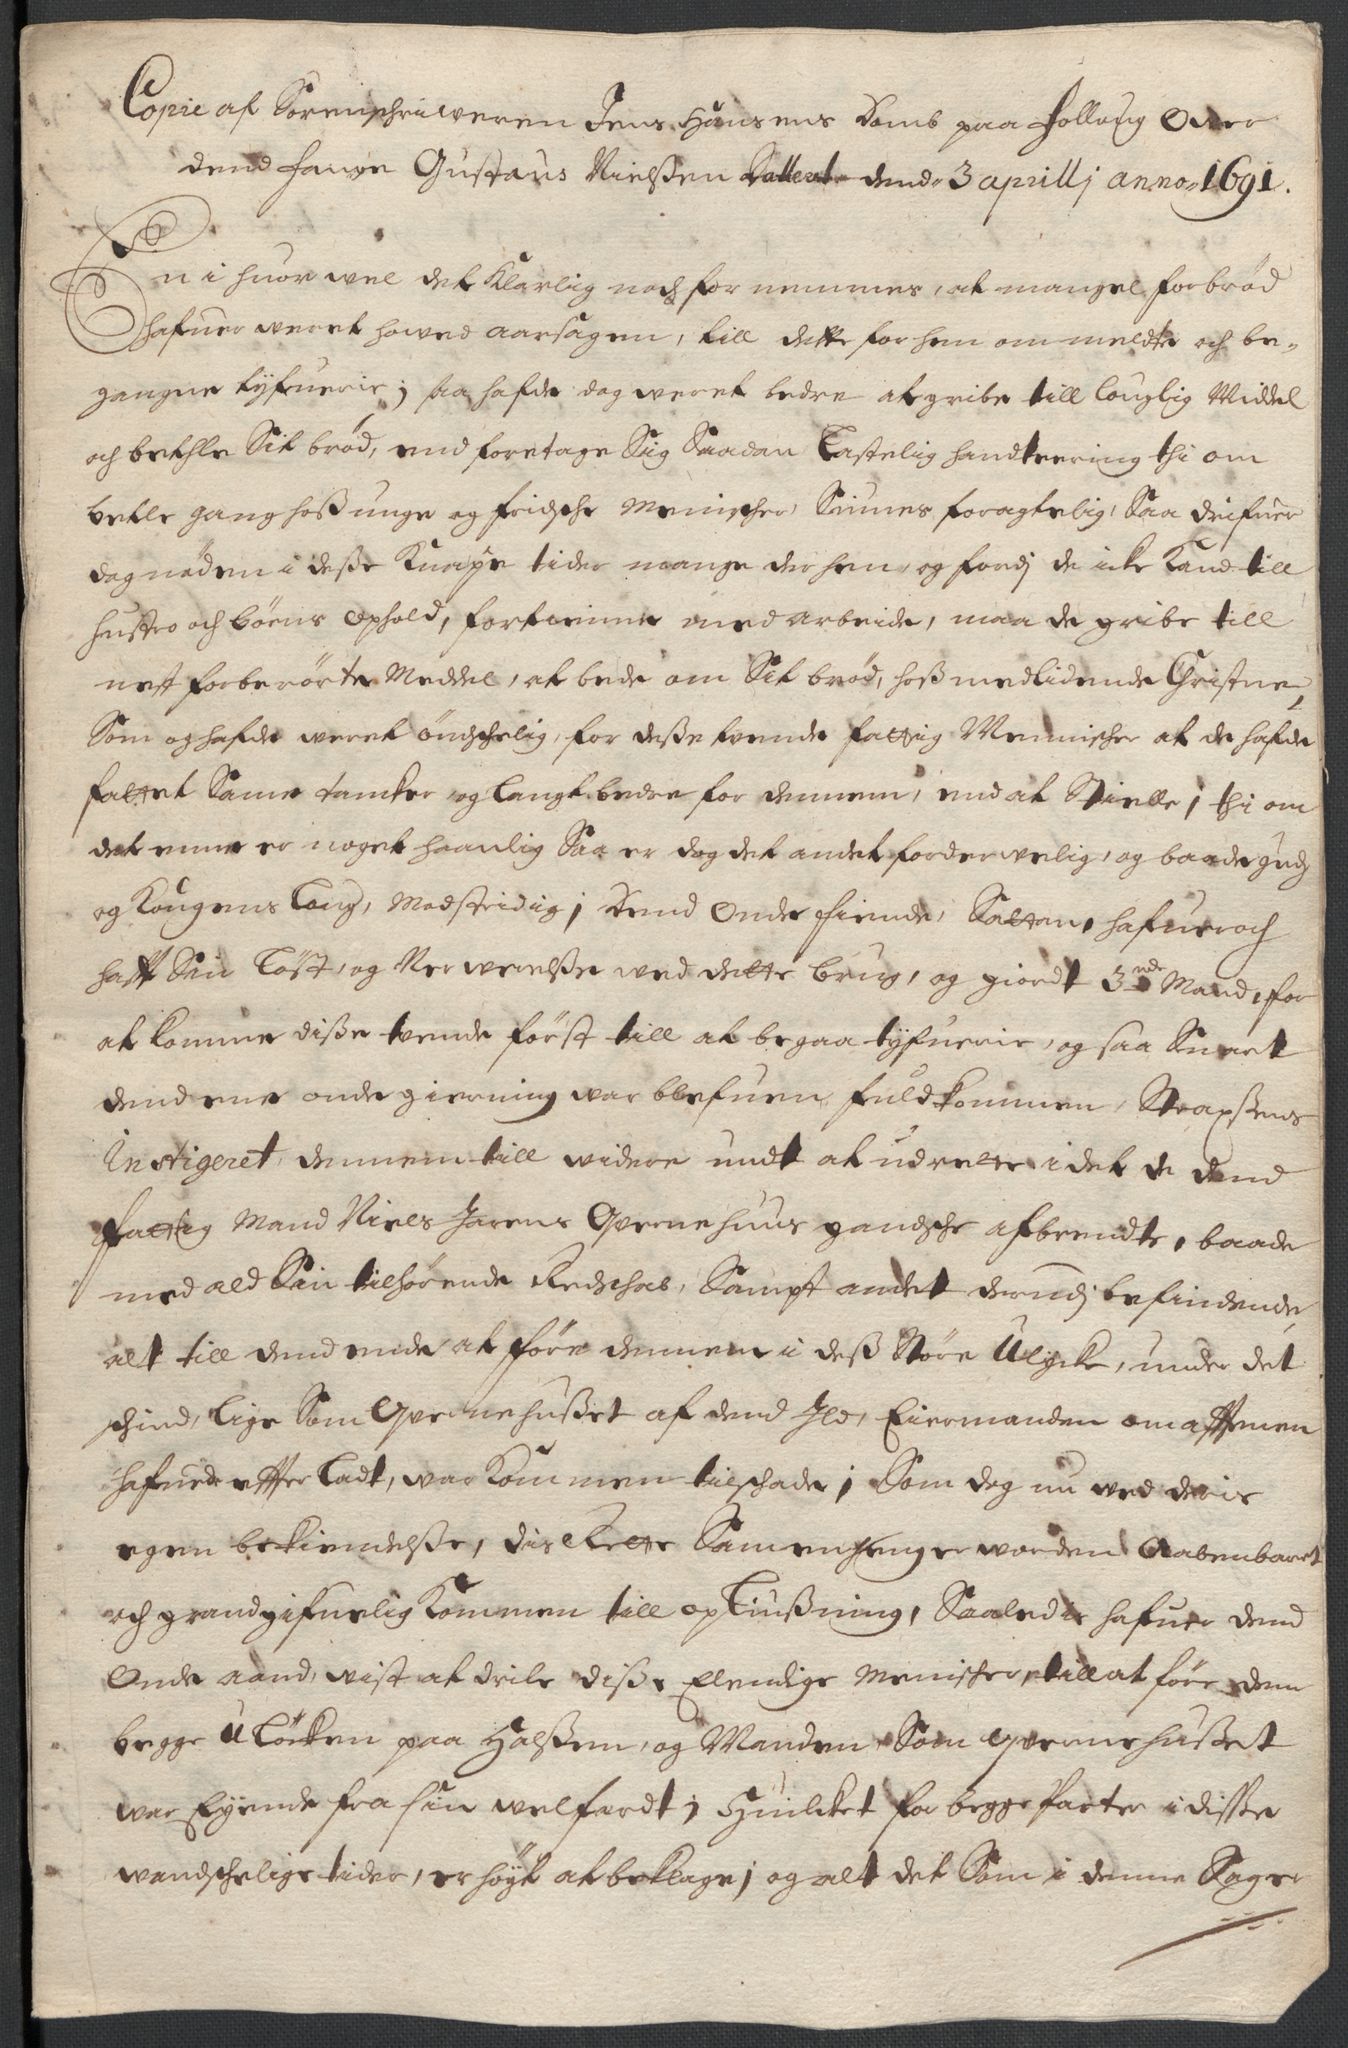 Copie af Sorenschriweren Jens Hansens Domb paa Hollaug Over
dend fange Gustavus Nielssen fallet dend 3 aprillj anno 1691.
En i huor wel det klarlig nochfornemmes, at mangel for brød
hafuer weret howed aarsagen, till dette forhen ommeldte och be-
gangne tyfuerie; saa hafde dog weret bedre at gribe till louglig Middel
och bethle Sit brød, end foretage Sig Saadan Lastelig handteering thi om
betle gang hoss unge og fridsche Menischer, Siunes foragtelig, Saa drifuer
dog nøden i desse Knape tider mange der hen, og fordj de icke kand till
hustro och børns ophold, fortienne med arbeide, maa de gribe till
nest forberørte Meddel, at bede om Sit brød, hoss medlidende Christne,
Som og hafde weret ønschelig, for desse tvende fattig Mennischer at de hafde
fattet Same tancker og langt bedre for dennem, end at Stielle; thi om
det enne er noget haanlig Saa er dog det andet forderwelig, og baade Gudz
og Kongens Loug, Modstridig; Dend Onde fiende, Sattan, hafuer och
hafft Sin Løst, og Nerwerelsse wed dette brug, og giordt 3die Mand, for
at komme disse tvende først till at begaa tyfuerie, og saa Snart
dend ene onde gierning war blefuen fuldkommen, Straxsens
Instigeret dennem till widere undt at udrette, i det de dend
fattig Mand Niels Jarens Qvernehuus gandsche afbrendte, baade
med ald Sin tilhørende Redschab, Sampt andet derudj befindende
alt till dend ende at føre dennem i dess Støre Ulycke, under det
schin, lige Som Qvernehusset af dend Ild, Eiermanden om afftenen
hafuede effter Ladt, war kommen til schade; Som dog nu wed deris
egen bekiendelsse, dis Rette Samenhenge er worden Aabenbaret
och grandgifuelig kommen till opliussning, Saaledis hafuer dend
Onde aand, wist at drile disse Elendige Menischer, till at føre dem
begge U Løcken paa Halssen, og Manden Som Qvernehusset
war Eyende fra sin welfardt; Huilcket for begge Parter i disse
wandschelige tider, er høyt at beklage; og alt det Som i denne Sag er